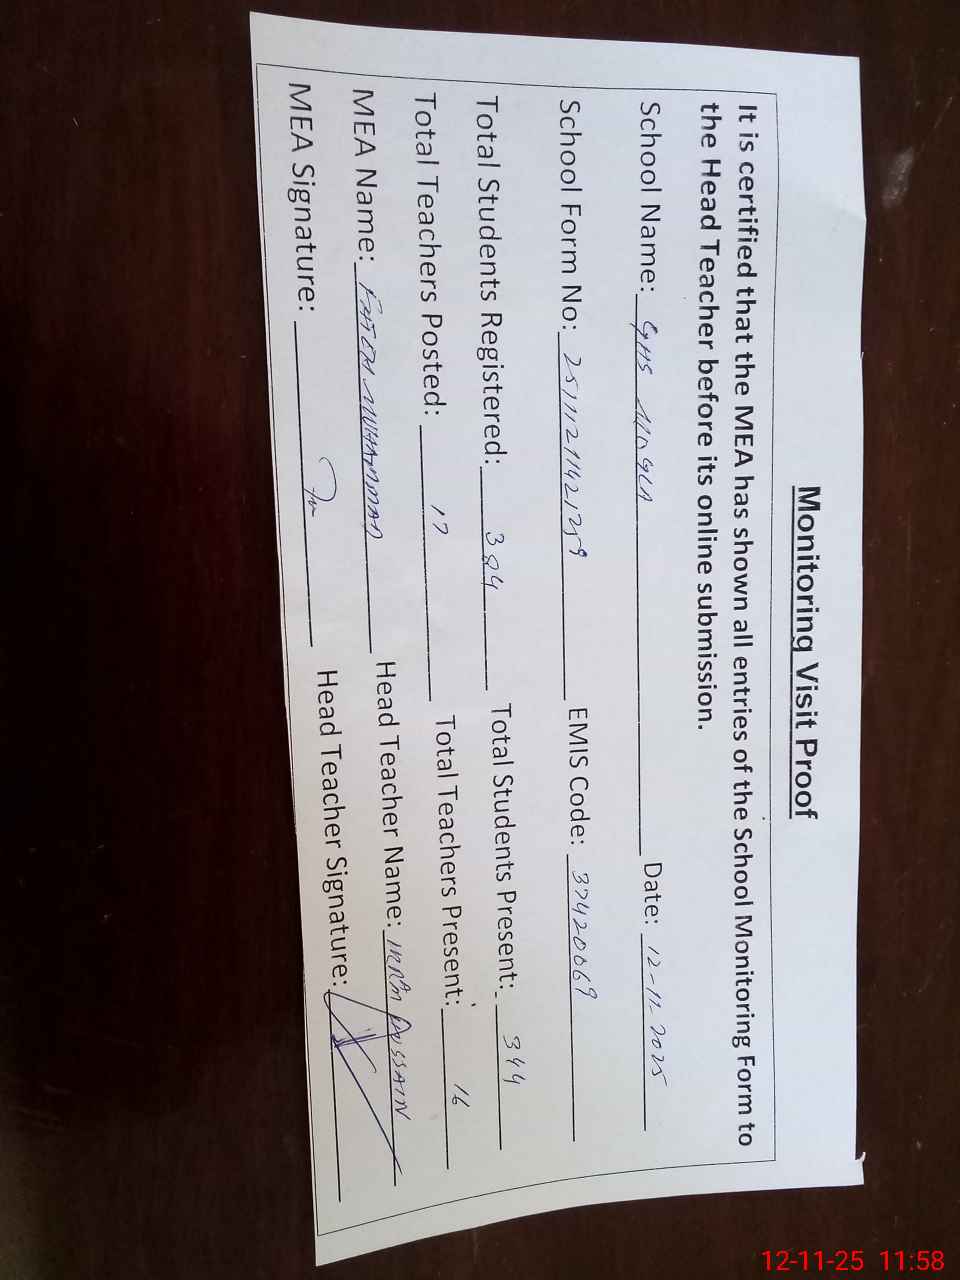 Monitoring Visit Proof
It is certified that the MEA has shown all entries of the School Monitoring Form to
the Head Teacher before its online submission.
School Name: GHS Date: 12-11-2025
School Form No: EMIS Code: 37420069
Total Students Registered: 384 Total Students Present: 344
Total Teachers Posted: 17 Total Teachers Present: 16
MEA Name: FATEH MUHAMMAD Head Teacher Name: IKRAM HUSSAIN
MEA Signature: Head Teacher Signature:
12-11-25 11:58